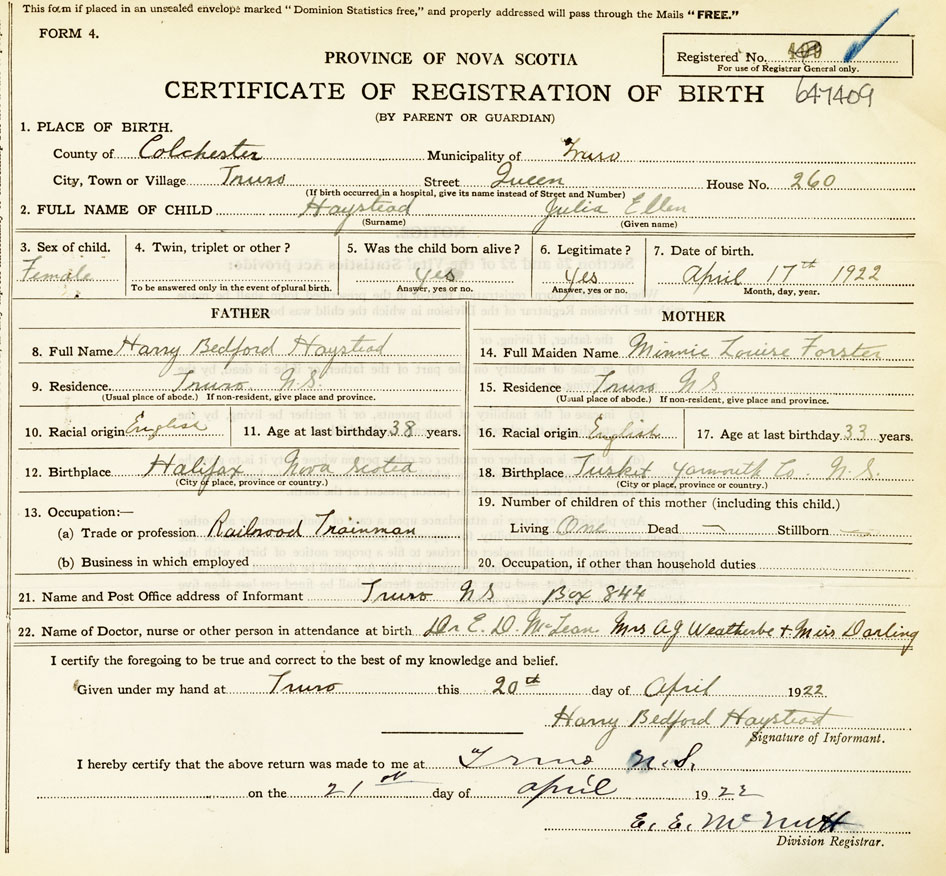 This form if placed in an unsealed envelope marked "Dominion Statistics free," and properly addressed will pass through the Mails "FREE."
FORM 4.
PROVINCE OF NOVA SCOTIA
Registered No. 409
For use of Registrar General only.
CERTIFICATE OF REGISTRATION OF BIRTH 647409
(BY PARENT OR GUARDIAN)
1. PLACE OF BIRTH.
County of Colchester Municipality of Truro
City, Town or Village Truro Street Queen House No. 260
(If birth occurred in a hospital, give its name instead of Street and Number)
2. FULL NAME OF CHILD Haystead Julia Ellen
(Surname) (Given name)
3. Sex of child. 4. Twin, triplet or other? 5. Was the child born alive? 6. Legitimate? 7. Date of birth.
Female yes yes April 17th 1922
To be answered only in the event of plural birth. Answer, yes or no. Answer, yes or no. Month, day, year.
FATHER MOTHER
8. Full Name Harry Bedford Haystead 14. Full Maiden Name Minnie Louise Forster
9. Residence. Truro N.S. 15. Residence Truro NS
(Usual place of abode.) If non-resident, give place and province. (Usual place of abode.) If non-resident, give place and province.
10. Racial origin English 11. Age at last birthday 38 years. 16. Racial origin English 17. Age at last birthday 33 years.
12. Birthplace Halifax Nova Scotia 18. Birthplace Tusket Yarmouth Co N.S.
(City or place, province or country.) (City or place, province or country.)
13. Occupation:— 19. Number of children of this mother (including this child.)
(a) Trade or profession Railroad Trainman Living One Dead — Stillborn —
(b) Business in which employed 20. Occupation, if other than household duties
21. Name and Post Office address of Informant Truro NS Box 844
22. Name of Doctor, nurse or other person in attendance at birth Dr E. D. McLean Mrs A G Weatherbe + Miss Darling
I certify the foregoing to be true and correct to the best of my knowledge and belief.
Given under my hand at Truro this 20th day of April 1922
Harry Bedford Haystead
Signature of Informant.
I hereby certify that the above return was made to me at Truro N.S.
on the 21st day of April 1922
E. E. McNutt
Division Registrar.